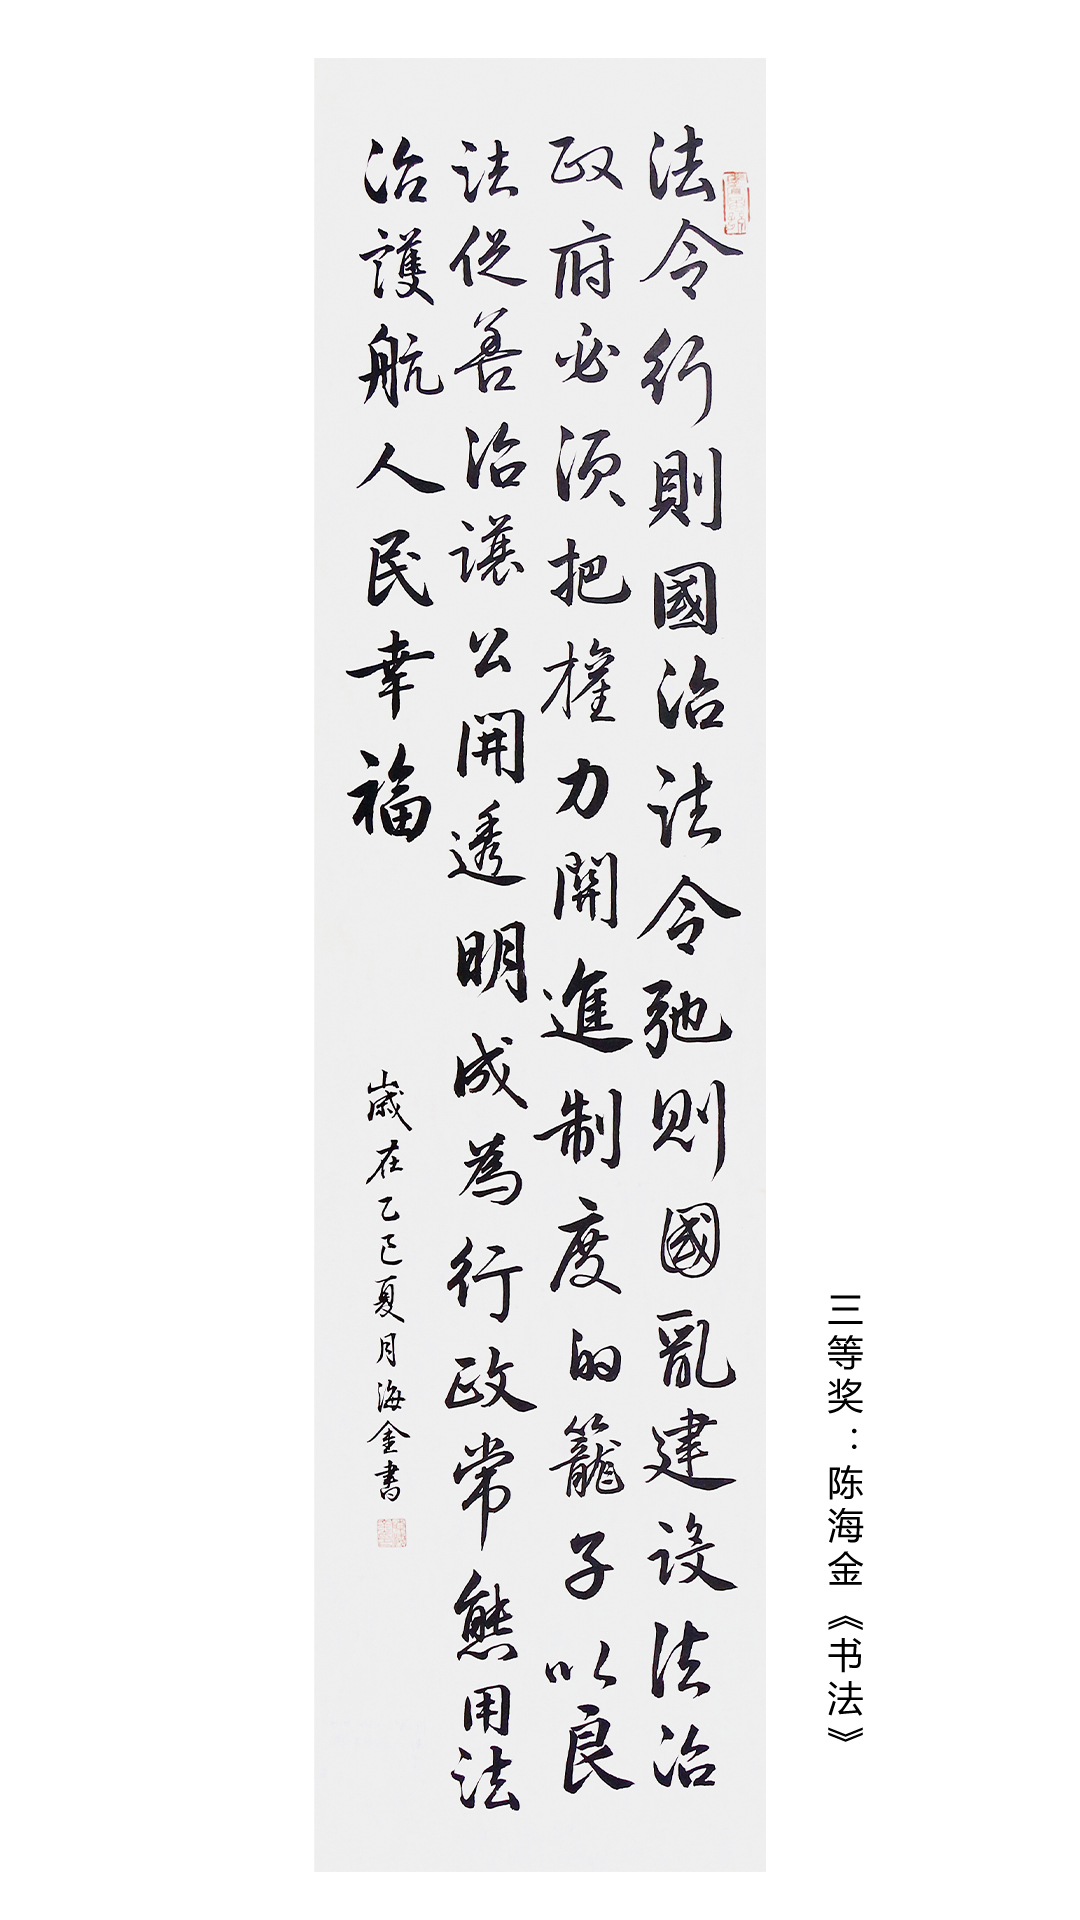 法令行則國治法令弛則國亂建設法治
政府必須把權力關進制度的籠子以良
法促善治讓公開透明成為行政常態用法
治護航人民幸福
歲在乙巳夏月海金書
三等奖：陈海金《书法》